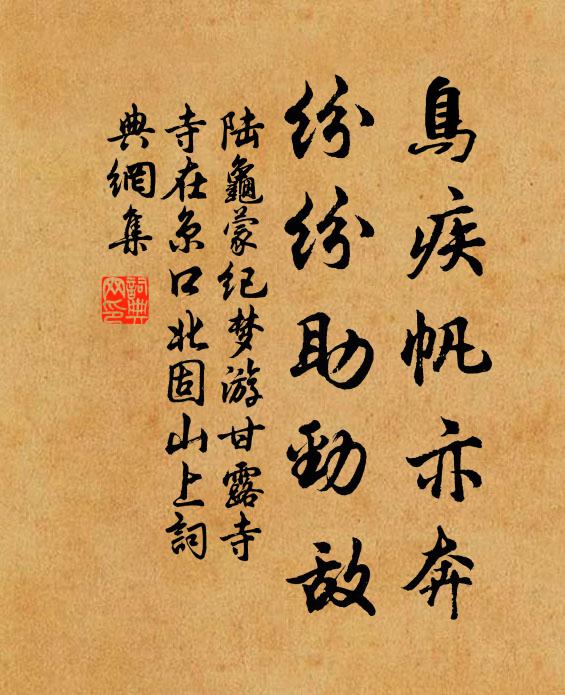 鳥疾帆亦奔
紛紛助勁敵
陆龜蒙纪梦游甘露寺
寺在京口北固山上詞
典網集
詞典
网印